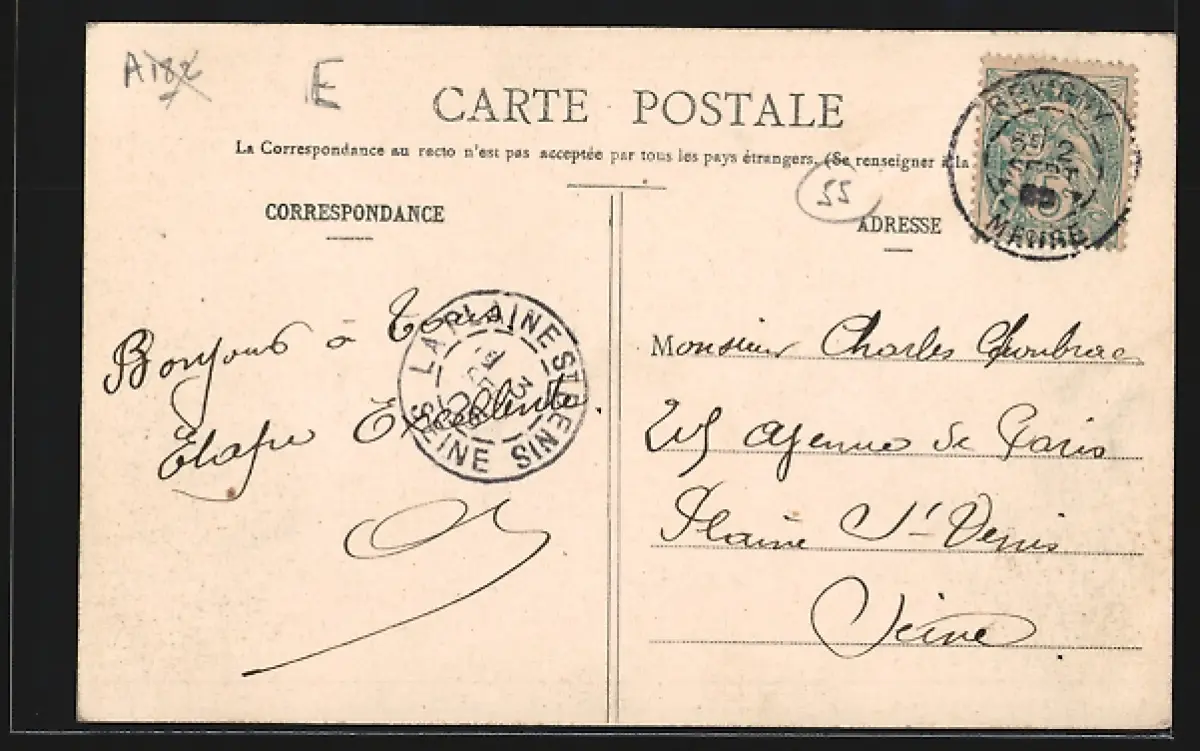 A182
E
CARTE POSTALE
La Correspondance au recto n'est pas acceptée par tous les pays étrangers. (Se renseigner à la
55
CORRESPONDANCE
ADRESSE
REVIGNY
MEUSE
5
LA PLAINE ST DENIS
SEINE
Bonjour à Tous.
Etape Excellente.
Monsieur Charles
215 avenue de Paris
Plaine St Denis
Seine